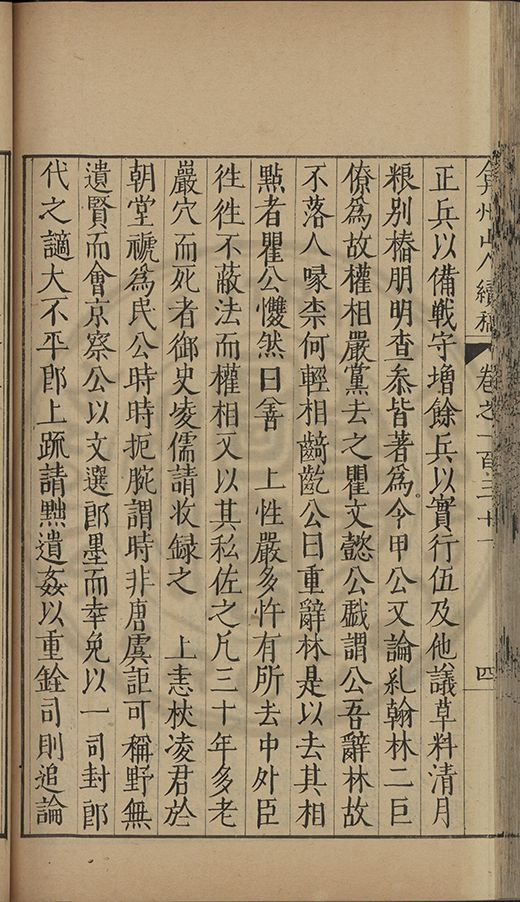 弇州山人續稿 卷之一百三十一 四
正兵以備戰守增餘兵以實行伍及他議草料清月
粮別樁朋明查叅皆著爲令甲公又論糺翰林二巨
僚爲故權相嚴黨去之瞿文懿公戱謂公吾辭林故
不落人喙柰何輕相齮齕公曰重辭林是以去其相
㸃者瞿公戄然曰善 上性嚴多忤有所去中外臣
徃徃不蔽法而權相又以其私佐之凡三十年多老
巖穴而死者御史凌儒請收録之 上恚杖凌君於
朝堂褫爲民公時時扼腕謂時非唐虞詎可稱野無
遺賢而會京察公以文選郎墨而幸免以一司封郎
代之謫大不平郎上疏請黜遺姦以重銓司則追論